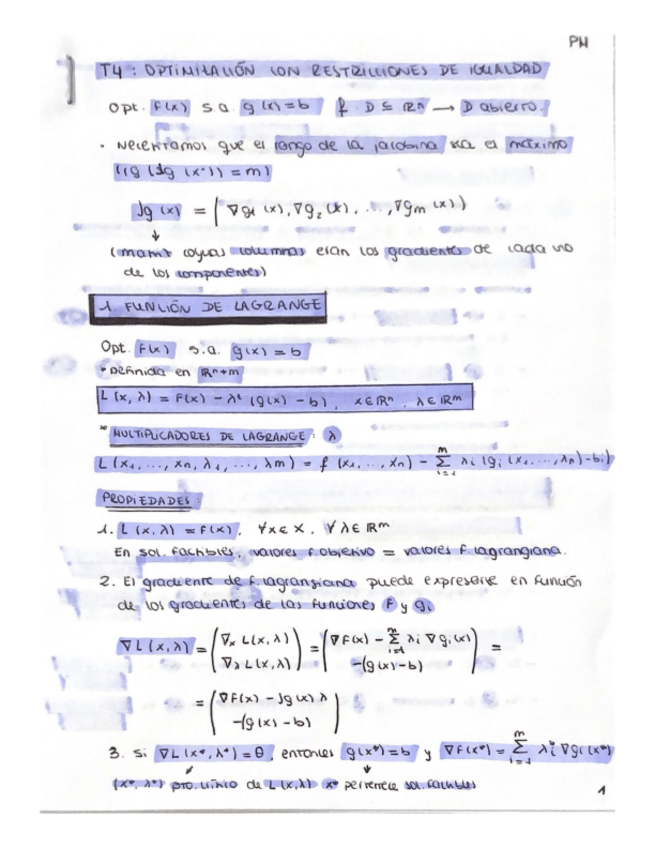 PM
T4: OPTIMIZACIÓN CON RESTRICCIONES DE IGUALDAD
Opt. F(x) s.a. g(x)=b f: D ⊆ ℝⁿ → D abierto.
• Necesitamos que el rango de la jacobina sea el máximo
(rg (Jg (x*)) = m)
Jg (x) = (∇g₁ (x), ∇g₂ (x), ..., ∇gₘ (x))
↓
(matriz cuyas columnas eran los gradientes de cada uno
de los componentes)
1. FUNCIÓN DE LAGRANGE
Opt. F(x) s.a. g(x) = b
• Definida en ℝⁿ⁺ᵐ
L (x, λ) = F(x) - λᵗ (g(x) - b), x∈ℝⁿ, λ∈ℝᵐ
* MULTIPLICADORES DE LAGRANGE: λ
L (x₁, ..., xₙ, λ₁, ..., λm) = f (x₁, ..., xₙ) - Σᵢ₌₁ᵐ λi (gᵢ (x₁, ..., xₙ) - bᵢ)
PROPIEDADES:
1. L (x, λ) = F(x), ∀x∈X, ∀λ∈ℝᵐ
En sol. factibles, valores f.objetivo = valores f.lagrangiana.
2. El gradiente de f.lagrangiana puede expresarse en función
de los gradientes de las funciones F y gᵢ
∇L (x, λ) = (∇ₓ L(x, λ) ∇λ L(x, λ)) = (∇F(x) - Σᵢ₌₁ᵐ λi ∇gᵢ(x) -(g(x)-b)) =
= (∇F(x) - Jg(x) λ -(g(x) - b))
3. Si ∇L (x*, λ*) = θ, entonces g(x*) = b y ∇F(x*) = Σᵢ₌₁ᵐ λᵢ* ∇gᵢ(x*)
(x*, λ*) pto. crítico de L(x, λ) x* pertenece sol. factibles
1